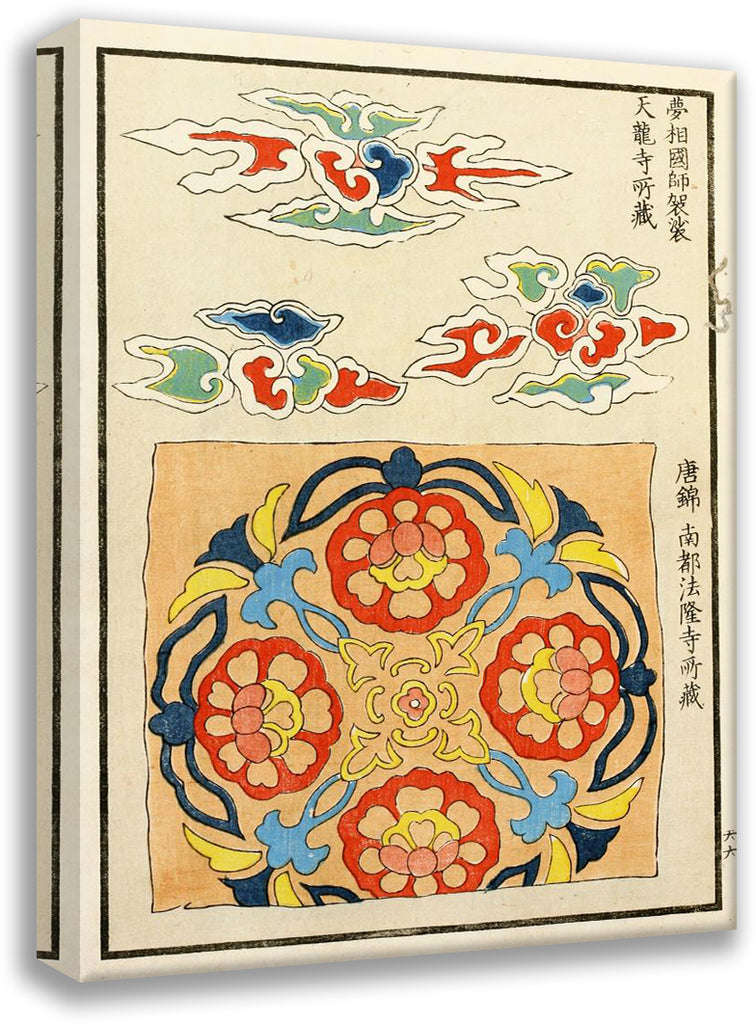 夢相國師袈裟
天龍寺所藏
唐錦 南都法隆寺所藏
六六